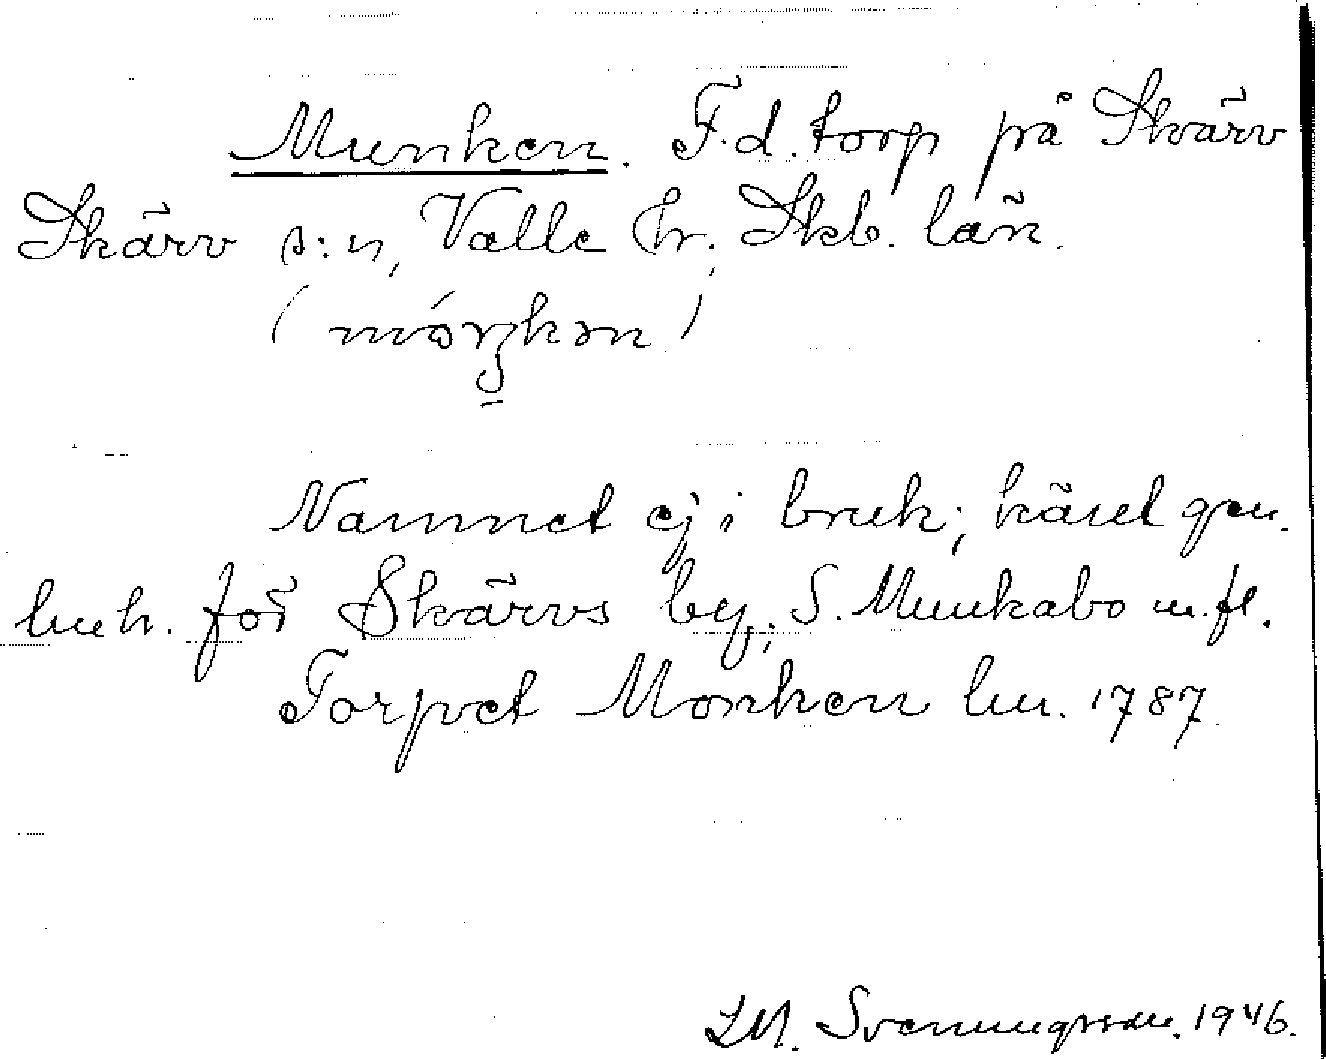 Munken. F.d. torp på Skärv
Skärv s:n, Valle hr, Skb. län.
(móŋkən)
Namnet ej i bruk; känt gen.
lmh. för Skärvs by; S. Munkabo m.fl.
Torpvet Monken lm. 1787
LM. Svenungsson. 1946.